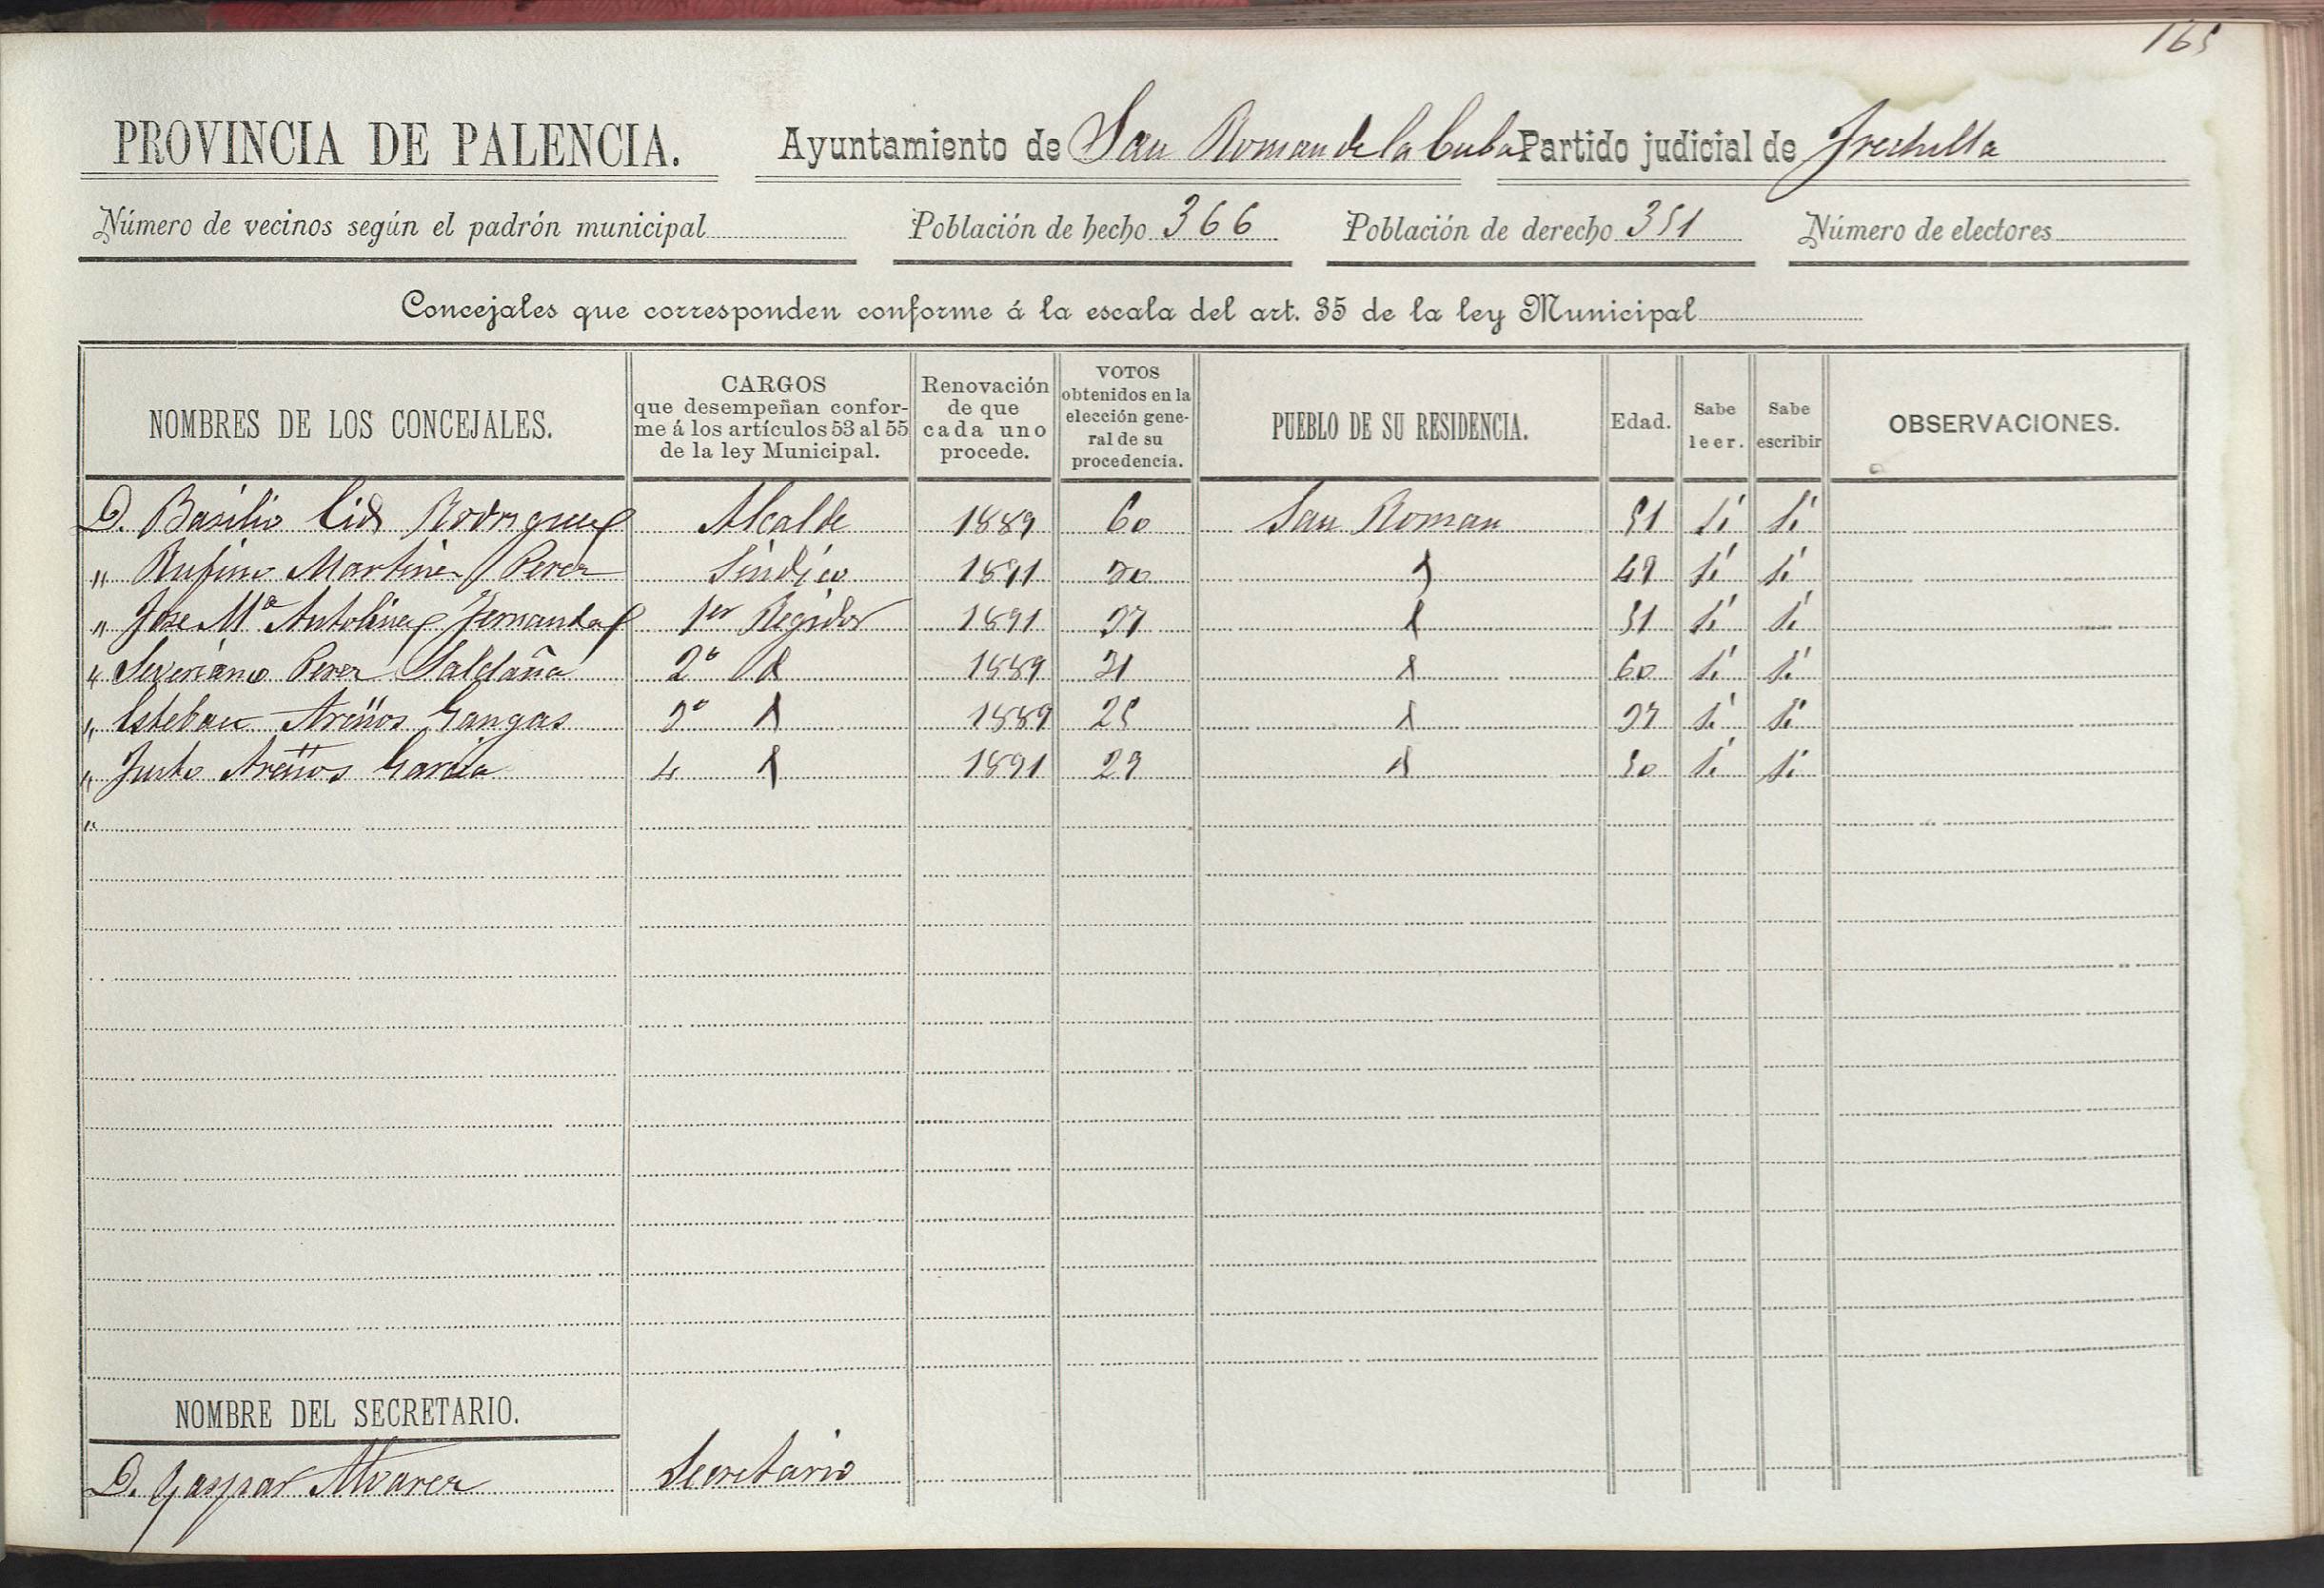 165
PROVINCIA DE PALENCIA. Ayuntamiento de San Roman de la Cuba Partido judicial de Frechilla
Número de vecinos según el padrón municipal Población de hecho 366 Población de derecho 351 Número de electores
Concejales que corresponden conforme á la escala del art. 35 de la ley Municipal
NOMBRES DE LOS CONCEJALES. CARGOS que desempeñan conforme á los artículos 53 al 55 de la ley Municipal. Renovación de que cada uno procede. VOTOS obtenidos en la elección general de su procedencia. PUEBLO DE SU RESIDENCIA. Edad. Sabe leer. Sabe escribir OBSERVACIONES.
D. Basilio Cid Rodriguez Alcalde 1889 60 San Roman 51 Si Si
" Rufino Martinez Perez Sindico 1891 30 49 Si Si
" Jose Mª Antolinez Fernandez 1er Regidor 1891 37 51 Si Si
" Severiano Perez Saldaña 2º 1889 31 60 Si Si
" Esteban Areños Gangas 3º 1889 25 37 Si Si
" Justo Areños Garcia 4 1891 29 50 Si Si
"
NOMBRE DEL SECRETARIO.
D. Gaspar Alvarez Secretario